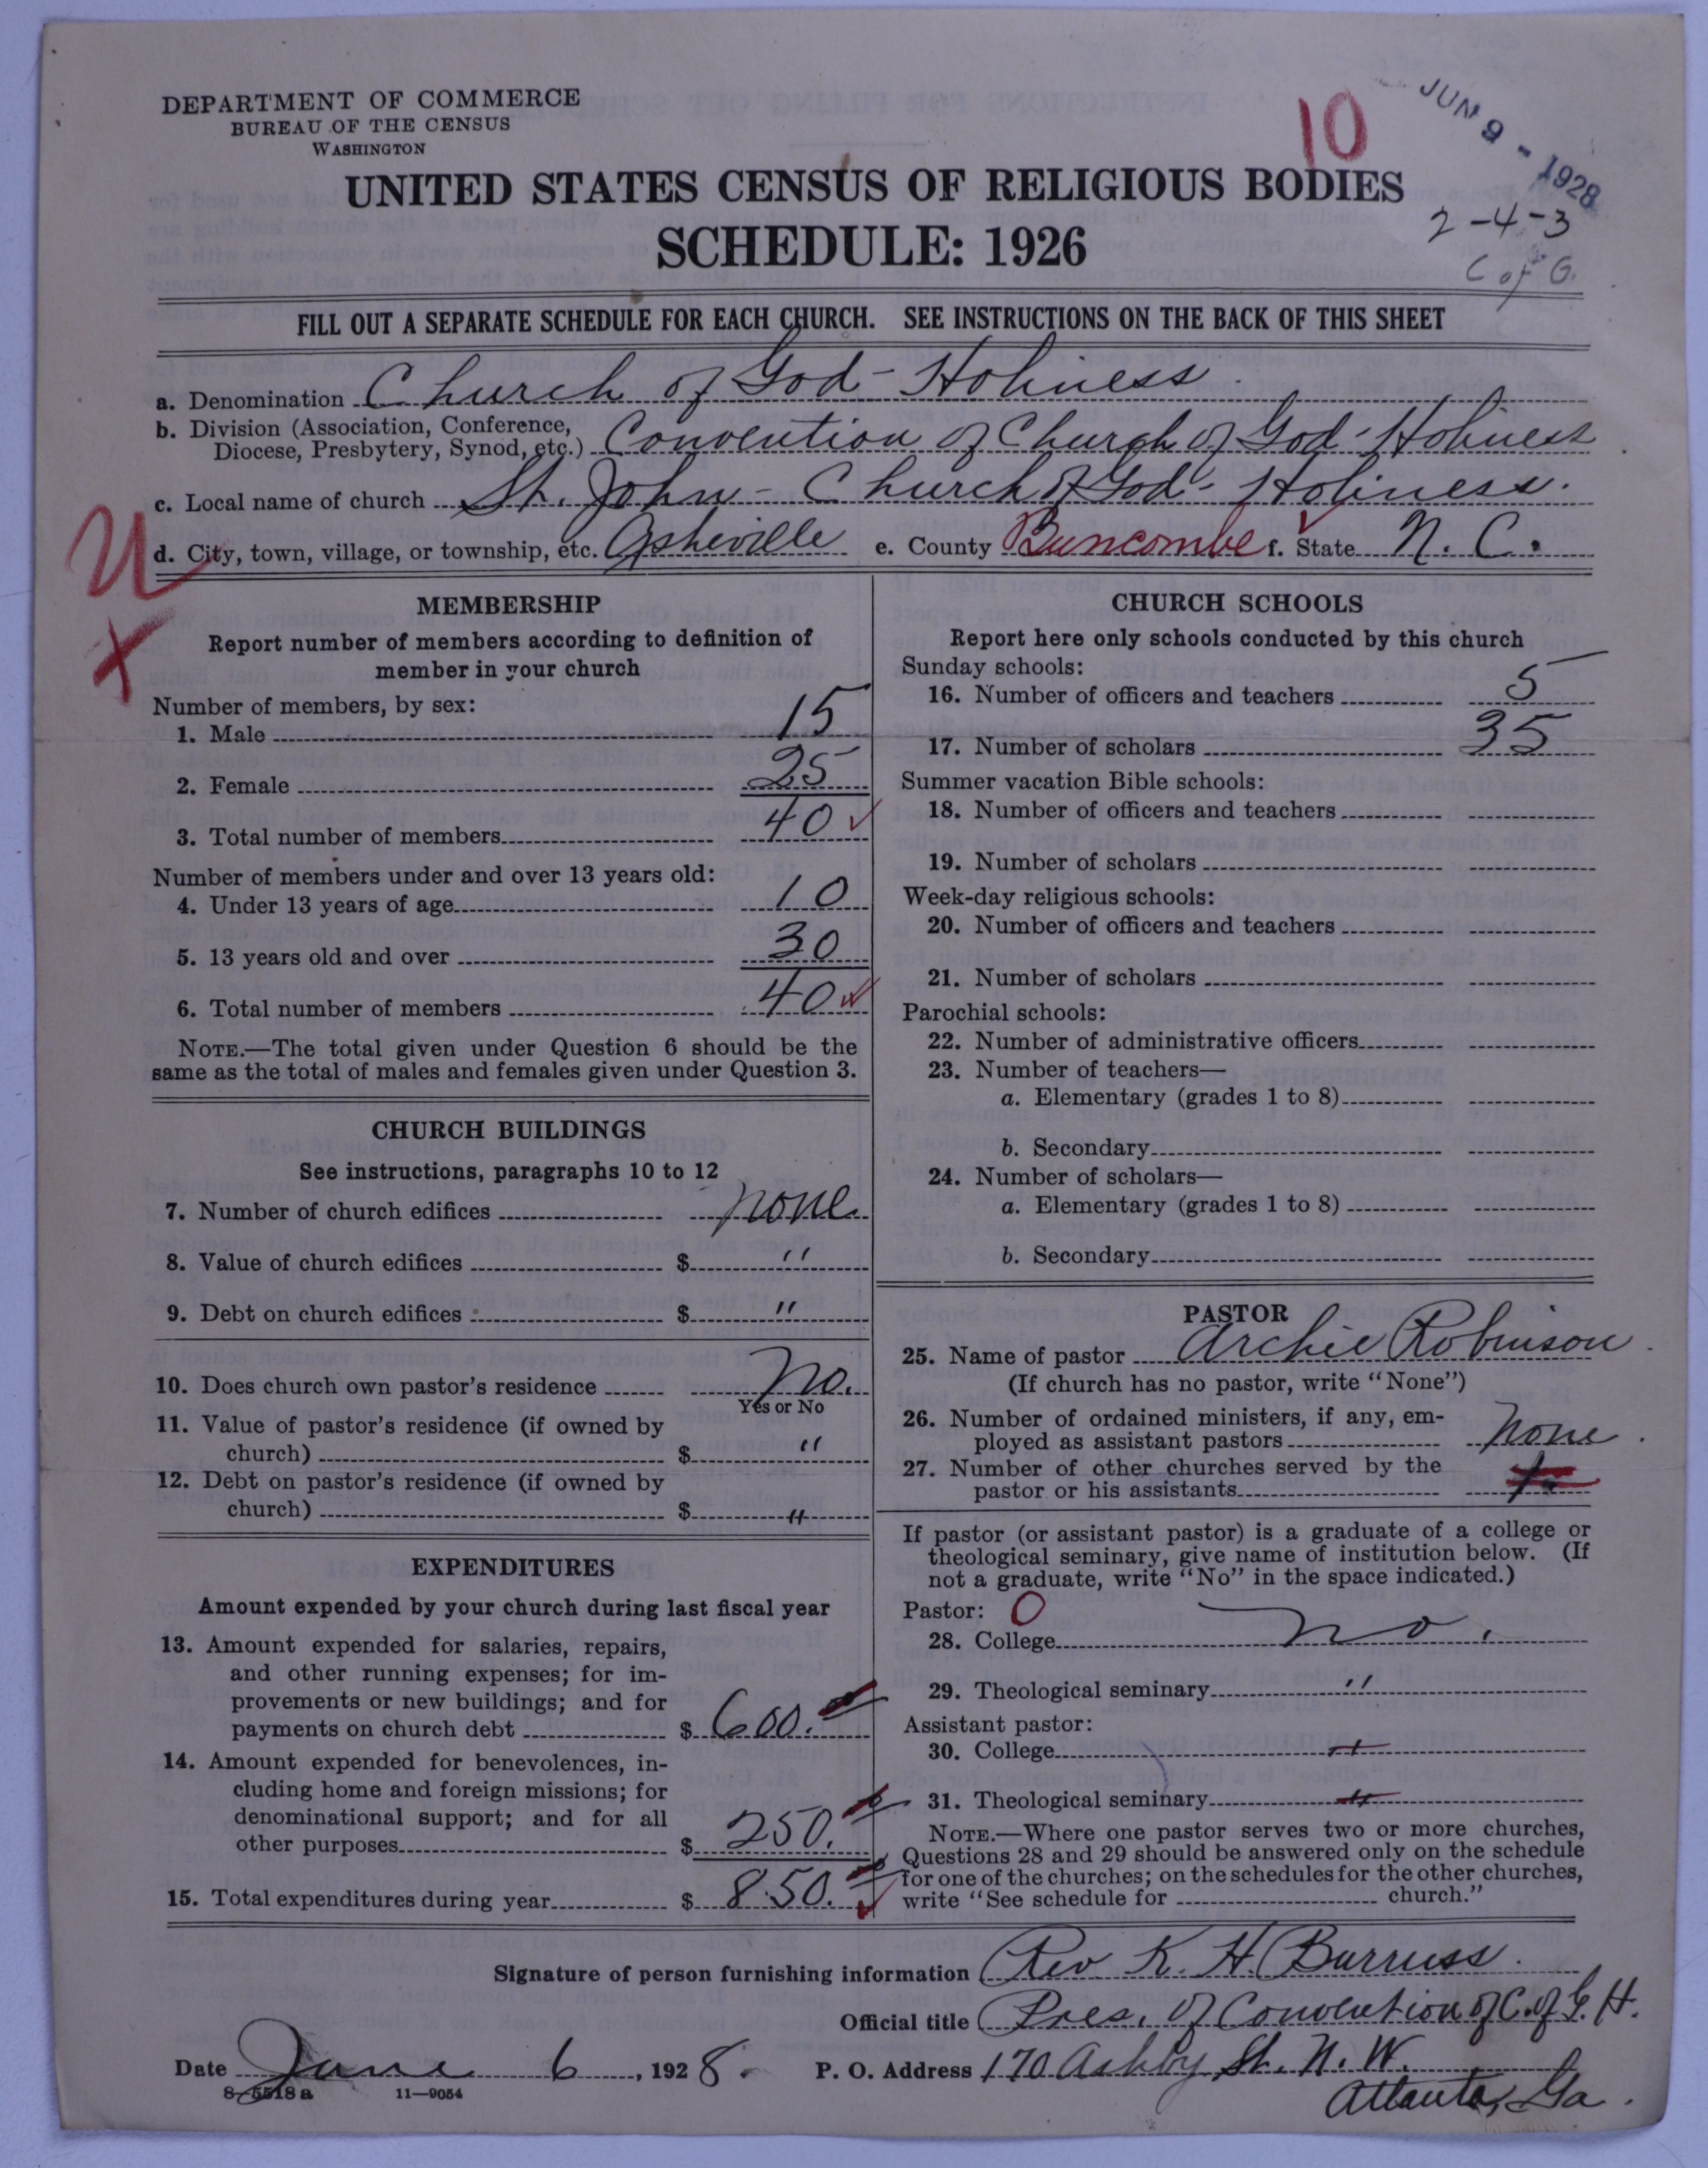 DEPARTMENT OF COMMERCE
BUREAU OF THE CENSUS
WASHINGTON
10
JUN 9 - 1928
UNITED STATES CENSUS OF RELIGIOUS BODIES
SCHEDULE: 1926
2-4-3
C of G.
FILL OUT A SEPARATE SCHEDULE FOR EACH CHURCH. SEE INSTRUCTIONS ON THE BACK OF THIS SHEET
a. Denomination Church of God - Holiness
b. Division (Association, Conference,
Diocese, Presbytery, Synod, etc.) Convention of Church of God - Holiness
c. Local name of church St. John - Church of God - Holiness.
d. City, town, village, or township, etc. Asheville e. County Buncombe f. State N. C.
U
X
MEMBERSHIP
Report number of members according to definition of
member in your church
Number of members, by sex:
1. Male 15
2. Female 25
3. Total number of members 40 ✓
Number of members under and over 13 years old:
4. Under 13 years of age 10
5. 13 years old and over 30
6. Total number of members 40 ✓
NOTE.—The total given under Question 6 should be the
same as the total of males and females given under Question 3.
CHURCH BUILDINGS
See instructions, paragraphs 10 to 12
7. Number of church edifices none
8. Value of church edifices $ "
9. Debt on church edifices $ "
10. Does church own pastor's residence No.
Yes or No
11. Value of pastor's residence (if owned by
church) $ "
12. Debt on pastor's residence (if owned by
church) $ "
EXPENDITURES
Amount expended by your church during last fiscal year
13. Amount expended for salaries, repairs,
and other running expenses; for im-
provements or new buildings; and for
payments on church debt $ 600.
14. Amount expended for benevolences, in-
cluding home and foreign missions; for
denominational support; and for all
other purposes $ 250.
15. Total expenditures during year $ 850. ✓
CHURCH SCHOOLS
Report here only schools conducted by this church
Sunday schools:
16. Number of officers and teachers 5
17. Number of scholars 35
Summer vacation Bible schools:
18. Number of officers and teachers
19. Number of scholars
Week-day religious schools:
20. Number of officers and teachers
21. Number of scholars
Parochial schools:
22. Number of administrative officers
23. Number of teachers—
a. Elementary (grades 1 to 8)
b. Secondary
24. Number of scholars—
a. Elementary (grades 1 to 8)
b. Secondary
PASTOR
25. Name of pastor Archie Robinson
(If church has no pastor, write "None")
26. Number of ordained ministers, if any, em-
ployed as assistant pastors None.
27. Number of other churches served by the
pastor or his assistants
If pastor (or assistant pastor) is a graduate of a college or
theological seminary, give name of institution below. (If
not a graduate, write "No" in the space indicated.)
Pastor: 0
28. College no.
29. Theological seminary "
Assistant pastor:
30. College "
31. Theological seminary "
NOTE.—Where one pastor serves two or more churches,
Questions 28 and 29 should be answered only on the schedule
for one of the churches; on the schedules for the other churches,
write "See schedule for church."
Signature of person furnishing information Rev K. H. Burruss.
Official title Pres. of Convention of C. of G. H.
Date June 6, 1928. P. O. Address 170 Ashby St. N. W.
Atlanta, Ga.
8-5518a 11—9054